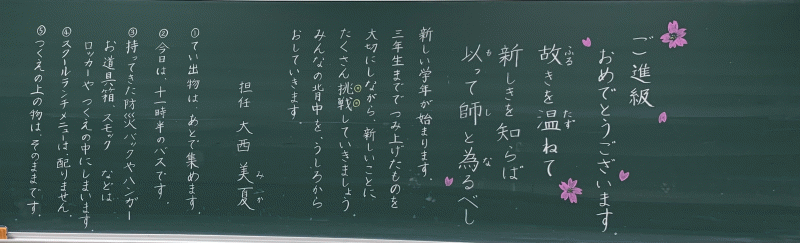 ご進級
おめでとうございます。
故きを温ねて
新しきを知らば
以って師と為るべし
新しい学年が始まります。
三年生までで つみ上げたものを
大切にしながら、新しいことに
たくさん挑戦していきましょう。
みんなの背中を、うしろから
おしていきます。
担任 大西 美夏
①てい出物は、あとで集めます。
②今日は、十一時半のバスです。
③持ってきた防災バックやハンガー
お道具箱 スモック などは
ロッカーや つくえの中にしまいます。
④スクールランチメニューは配りません。
⑤つくえの上の物は、そのままです。
ふる
たず
も
し
な
みか